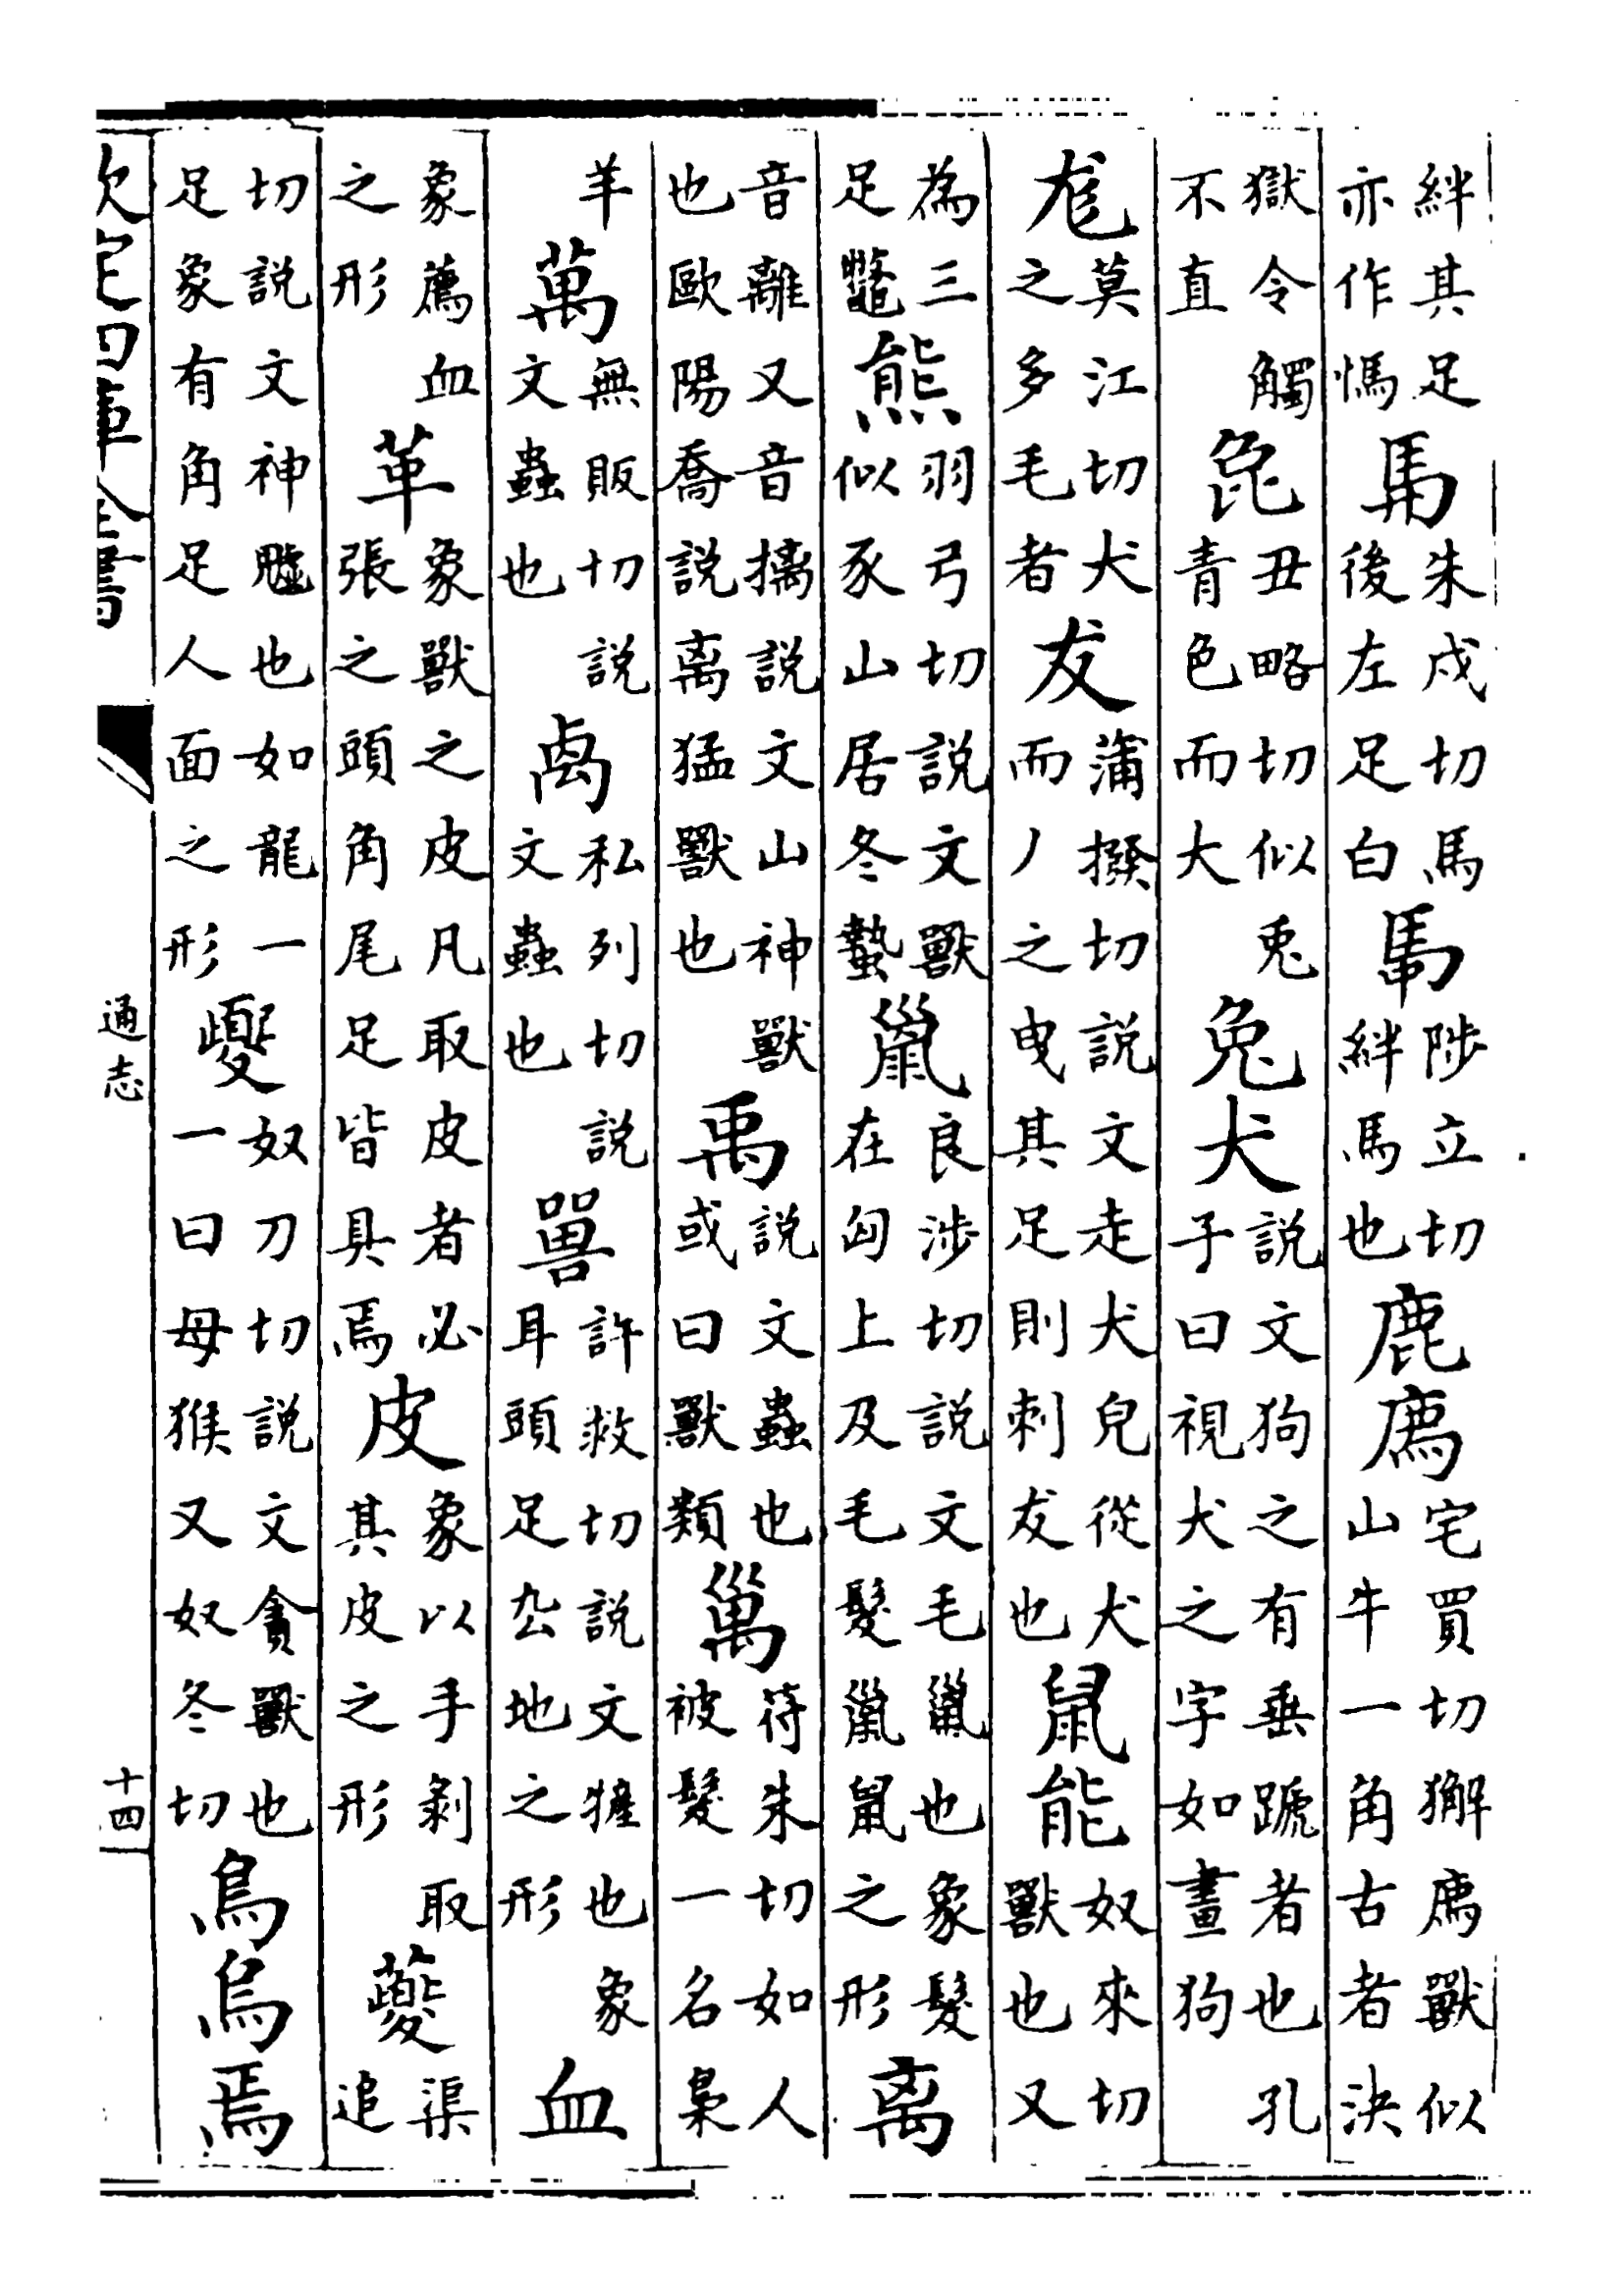 絆其足亦作㦄馵朱戍切馬後左足白馽陟立切絆馬也鹿廌宅買切獬廌獸似山牛一角古者決
獄令觸不直㲋丑略切似兔青色而大兔犬說文狗之有垂蹏者也孔子曰視犬之字如畫狗
尨莫江切犬之多毛者犮蒲撥切說文走犬皃從犬而丿之曳其足則刺犮也鼠能奴來切獸也又
為三足鼈熊羽弓切說文獸似豕山居冬蟄巤良涉切說文毛巤也象髮在囟上及毛髮巤鼠之形离
音離又音摛說文山神獸也歐陽喬說离猛獸也禹說文蟲也或曰獸類符朱切如人被髮一名梟
羊萬無販切說文蟲也禼私列切說文蟲也嘼許救切說文㹌也象耳頭足厹地之形血
象薦血之形革象獸之皮凡取皮者必張之頭角尾足皆具焉皮象以手剝取其皮之形夔渠追
切說文神魖也如龍一足象有角足人面之形夒奴刀切說文貪獸也一曰母猴又奴冬切鳥烏焉
欽定四庫全書
通志
十四